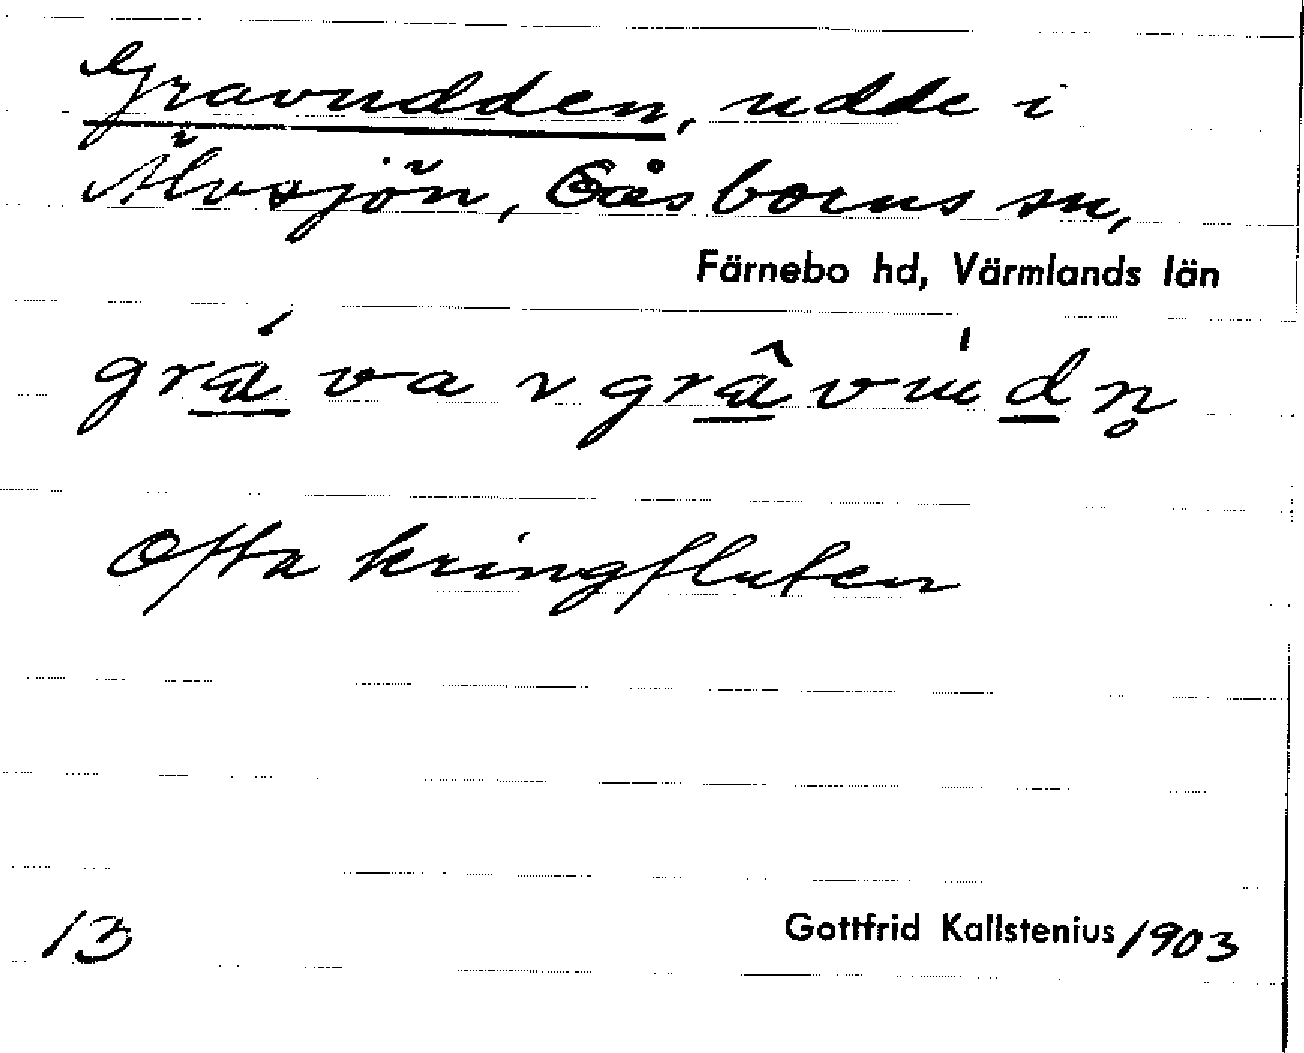 Gravudden, udde i
Älvsjön, Gåsborns sn,
Färnebo hd, Värmlands län
gráva r grâvúdn̥
Ofta kringfluten
13
Gottfrid Kallstenius 1903